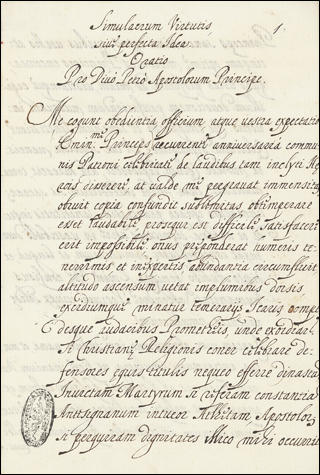 Simulacrum Virtutis 1.
siue perfecta Idea.
Oratio
Pro Diuo Petro Apostolorum Principe.
Me cogunt obedientia officium atque uestra expectatio
Emin. Princeps recurrenti anniuersaria commu
nis Patroni celebritate de laudibus tam inclyti He
rois disserere, at ualde me pregrauat immensitas
obruit copia confundit sublimitas obtemperare
esset laudabile prosequi est difficile satisfacere
cert impossibile onus preponderat humeris te
nerrimis et inexpertis abundantia circumfluit
altitudo ascensum uetat implumibus dorsis
exordiumque minatur temerarijs Icaris compe
desque audacibus Prometheis, unde exordiar
si christianæ Religionis coner celebrare de
fensores equis titulis nequeo efferre dinastam
Inuictam Martyrum si referam constantiam
Antesignanum intueor Athletam, Apostolorum
si perquiram dignitates Mico mihi occurrit